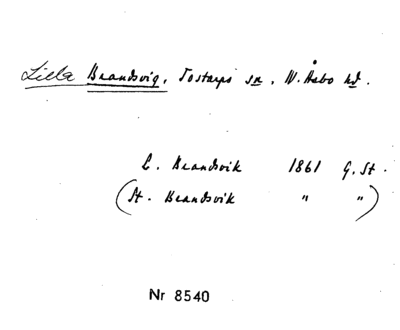 Lilla Brandsvig, Tostarps sn, N. Åsbo hd.
L. Brandsvik 1861 G. St.
(St. Brandsvik " ")
Nr 8540